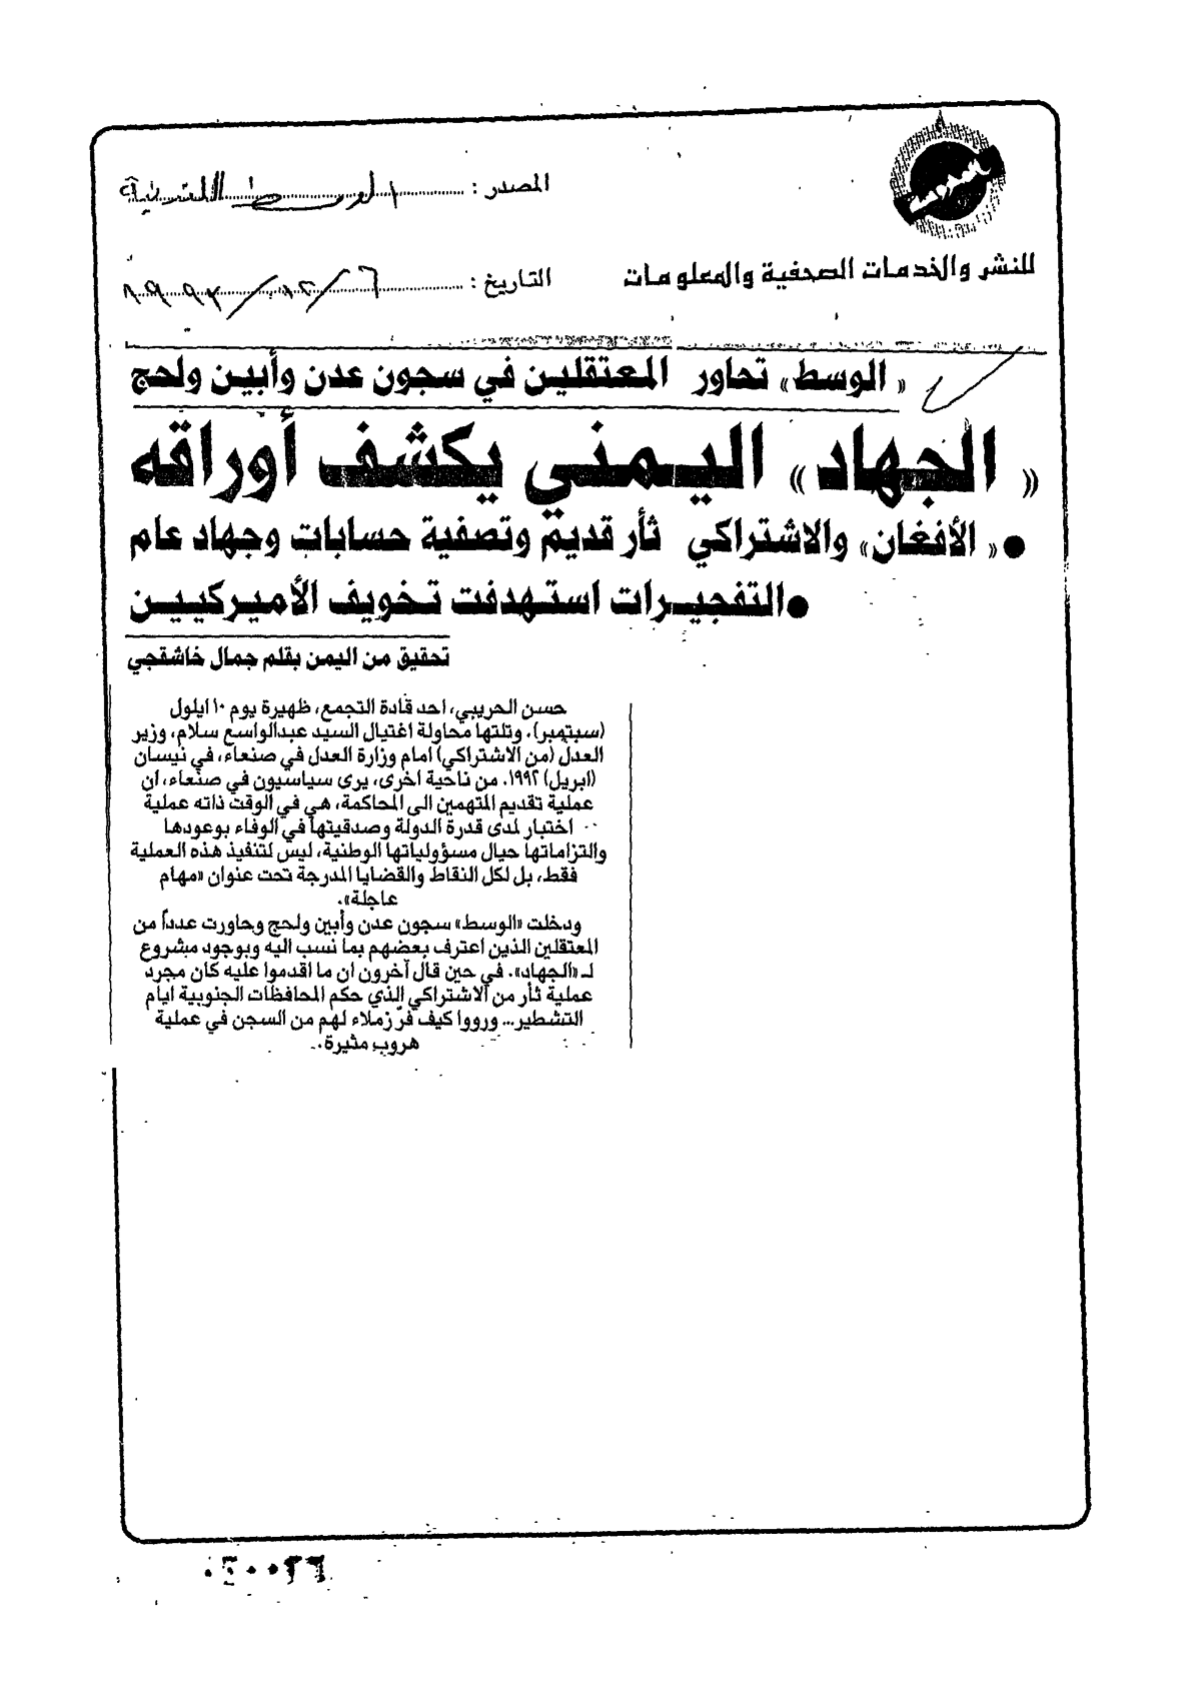 المصدر : الوسط اللندنية
للنشر والخدمات الصحفية والمعلومات
التاريخ : ٦ / ١٢ / ١٩٩٣
« الوسط » تحاور المعتقلين في سجون عدن وأبين ولحج
« الجهاد » اليمني يكشف أوراقه
● « الأفغان » والاشتراكي ثأر قديم وتصفية حسابات وجهاد عام
● التفجيرات استهدفت تخويف الأميركيين
تحقيق من اليمن بقلم جمال خاشقجي
حسن الحريبي، احد قادة التجمع، ظهيرة يوم ١٠ ايلول
(سبتمبر). وتلتها محاولة اغتيال السيد عبدالواسع سلام، وزير
العدل (من الاشتراكي) امام وزارة العدل في صنعاء، في نيسان
(ابريل) ١٩٩٢. من ناحية اخرى، يرى سياسيون في صنعاء، ان
عملية تقديم المتهمين الى المحاكمة، هي في الوقت ذاته عملية
اختبار لمدى قدرة الدولة وصدقيتها في الوفاء بوعودها
والتزاماتها حيال مسؤولياتها الوطنية، ليس لتنفيذ هذه العملية
فقط، بل لكل النقاط والقضايا المدرجة تحت عنوان «مهام
عاجلة».
ودخلت «الوسط» سجون عدن وأبين ولحج وحاورت عدداً من
المعتقلين الذين اعترف بعضهم بما نسب اليه وبوجود مشروع
لـ «الجهاد». في حين قال آخرون ان ما اقدموا عليه كان مجرد
عملية ثأر من الاشتراكي الذي حكم المحافظات الجنوبية ايام
التشطير... ورووا كيف فرّ زملاء لهم من السجن في عملية
هروب مثيرة.